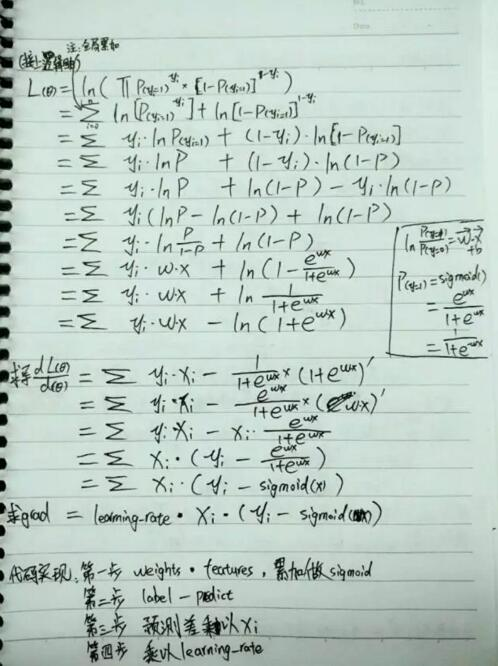 注:全局累加
(接上逻辑)
L(θ) = ln(∏ P(yi=1)^yi * [1-P(yi=1)]^1-yi)
= ∑ ln[P(yi=1)]^yi + ln[1-P(yi=1)]^1-yi
= ∑ yi·lnP(yi=1) + (1-yi)·ln[1-P(yi=1)]
= ∑ yi·lnP + (1-yi)·ln(1-P)
= ∑ yi·lnP + ln(1-P) - yi·ln(1-P)
= ∑ yi(lnP - ln(1-P)) + ln(1-P)
= ∑ yi·ln P/1-P + ln(1-P)
= ∑ yi·w·x + ln(1- e^wx/1+e^wx)
= ∑ yi·w·x + ln 1/1+e^wx
= ∑ yi·w·x - ln(1+e^wx)
ln P(y=1)/P(y=0) = w·x
+b
P(y=1) = sigmoid()
= e^wx/1+e^wx
= 1/1+e^-wx
求导 dL(θ)/d(θ) = ∑ yi·xi - 1/1+e^wx * (1+e^wx)'
= ∑ yi·xi - e^wx/1+e^wx * (w·x)'
= ∑ yi·xi - xi· e^wx/1+e^wx
= ∑ xi·(yi - e^wx/1+e^wx)
= ∑ xi·(yi - sigmoid(x))
求grad = learning_rate · xi·(yi - sigmoid(x))
代码实现:第一步 weights · features,累加做sigmoid
第二步 label - predict
第三步 预测差乘以xi
第四步 乘以learning_rate